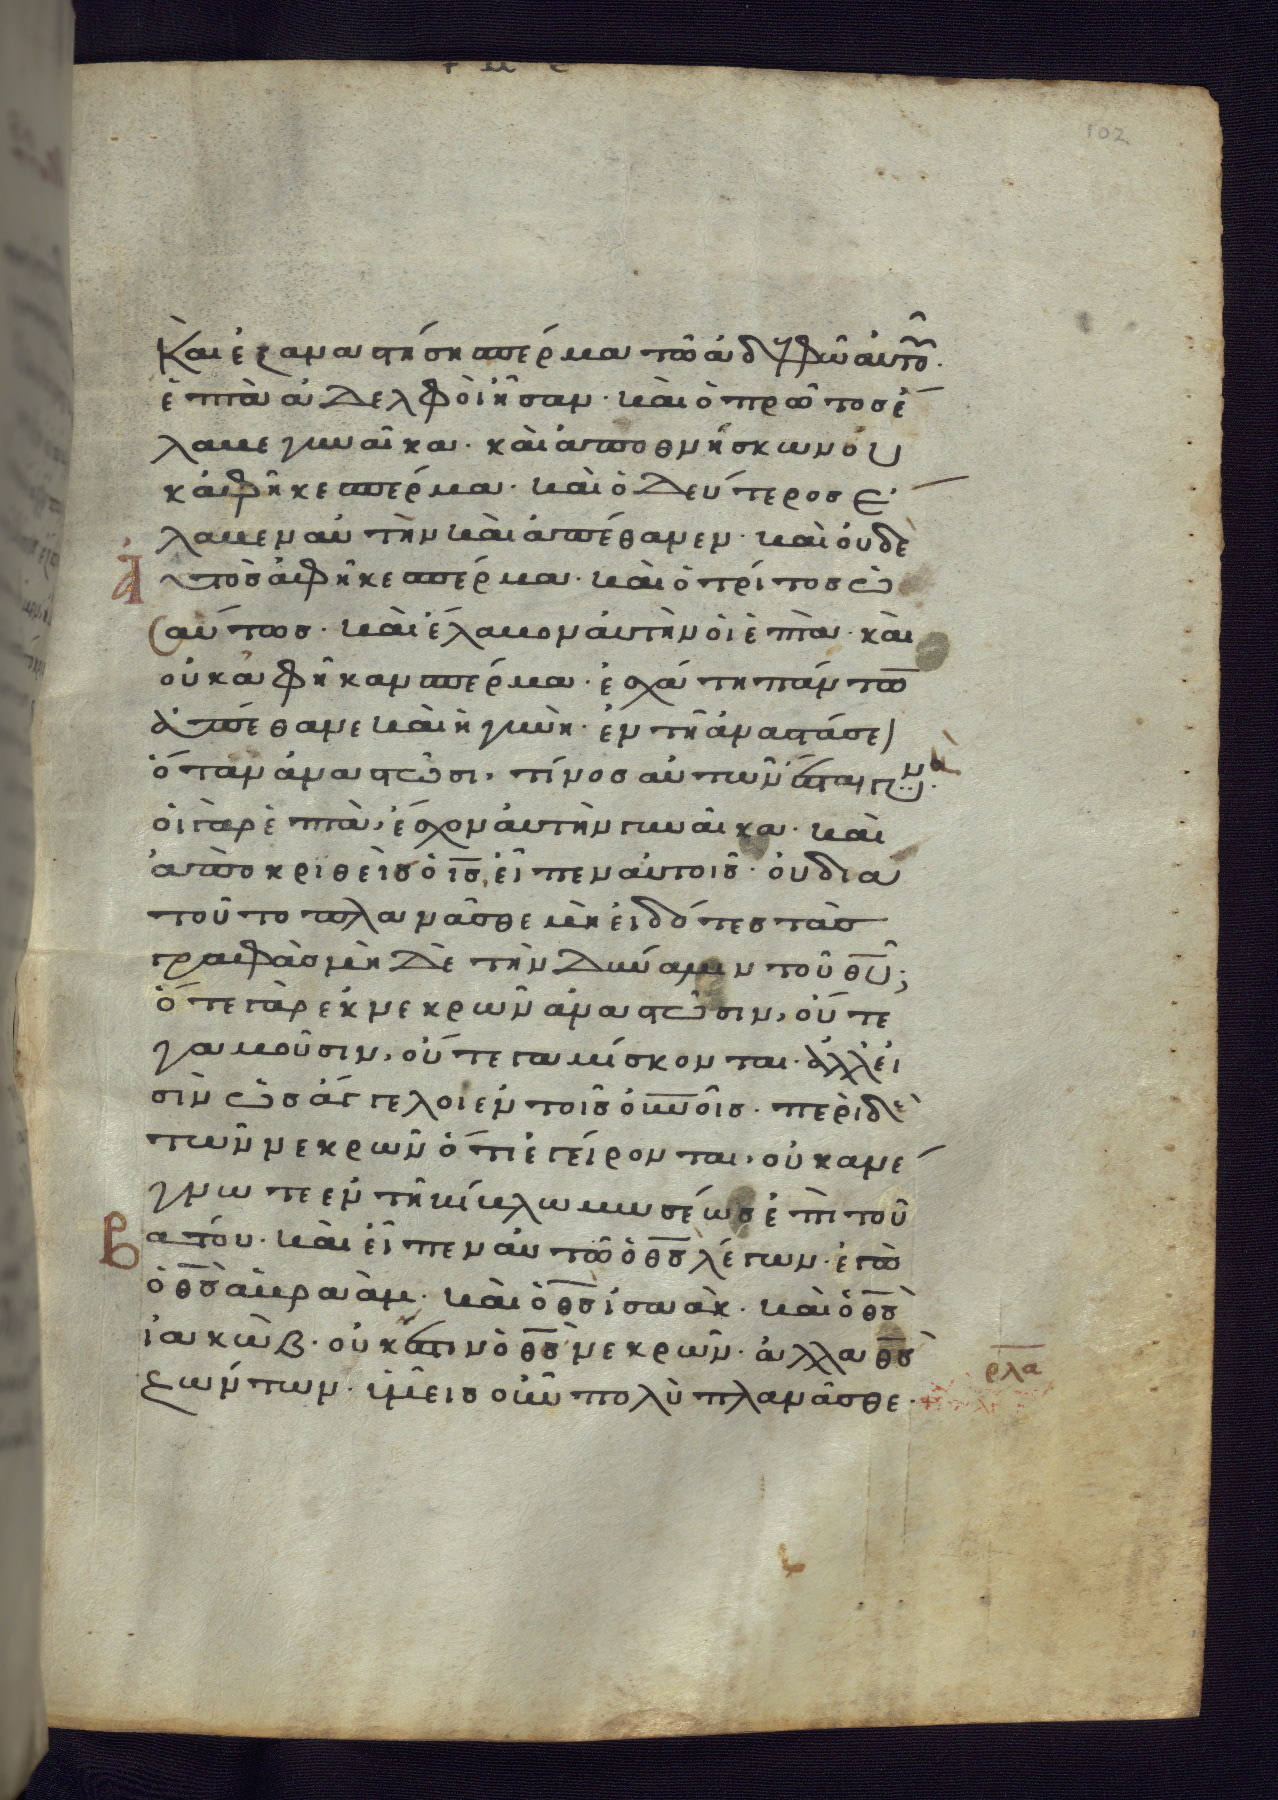 102
Καὶ ἐξαναστήση σπέρμα τῶ ἀδελφῶ αὐτοῦ·
ἑπτὰ ἀδελφοὶ ἦσαν· καὶ ὁ πρῶτος ἔ
λαβε γυναῖκα· καὶ ἀποθνήσκων οὐ
κ ἀφῆκε σπέρμα· καὶ ὁ δεύτερος ἔ
λαβεν αὐτὴν καὶ ἀπέθανεν· καὶ οὐδὲ
αὐτὸς ἀφῆκε σπέρμα· καὶ ὁ τρίτος ὡ
σαύτως· καὶ ἔλαβον αὐτὴν οἱ ἑπτὰ· καὶ
οὐκ ἀφῆκαν σπέρμα· ἐσχάτη πάντων
ἀπέθανε καὶ ἡ γυνὴ· ἐν τῆ ἀναστάσει
ὅταν ἀναστῶσι, τίνος αὐτῶν ἔσται γυνή·
οἱ γὰρ ἑπτὰ, ἔσχον αὐτὴν γυναῖκα· καὶ
ἀποκριθεὶς ὁ ις, εἶπεν αὐτοῖς· οὐ διὰ
τοῦτο πλανᾶσθε μὴ εἰδότες τὰς
γραφὰς μὴ δὲ τὴν δύναμιν τοῦ θυ;
ὅτε γὰρ ἐκ νεκρῶν ἀναστῶσιν, οὔτε
γαμοῦσιν, οὔτε γαμίσκονται· ἀλλ' εἰ
σὶν ὡς ἄγγελοι ἐν τοῖς οὐνοῖς· περὶ δὲ
τῶν νεκρῶν ὅτι ἐγείρονται, οὐκ ἀνέ
γνωτε ἐν τῆ βίβλω μωσέως ἐπὶ τοῦ
βάτου· καὶ εἶπεν αὐτῶ ὁ θς λέγων· ἐγὼ
ὁ θς ἀβραὰμ· καὶ ὁ θς ἰσαὰκ· καὶ ὁ θς
ἰακὼβ· οὐκ ἔστιν ὁ θς νεκρῶν· ἀλλὰ θς
ζώντων· ὑμεῖς οὖν πολὺ πλανᾶσθε·
ρλα